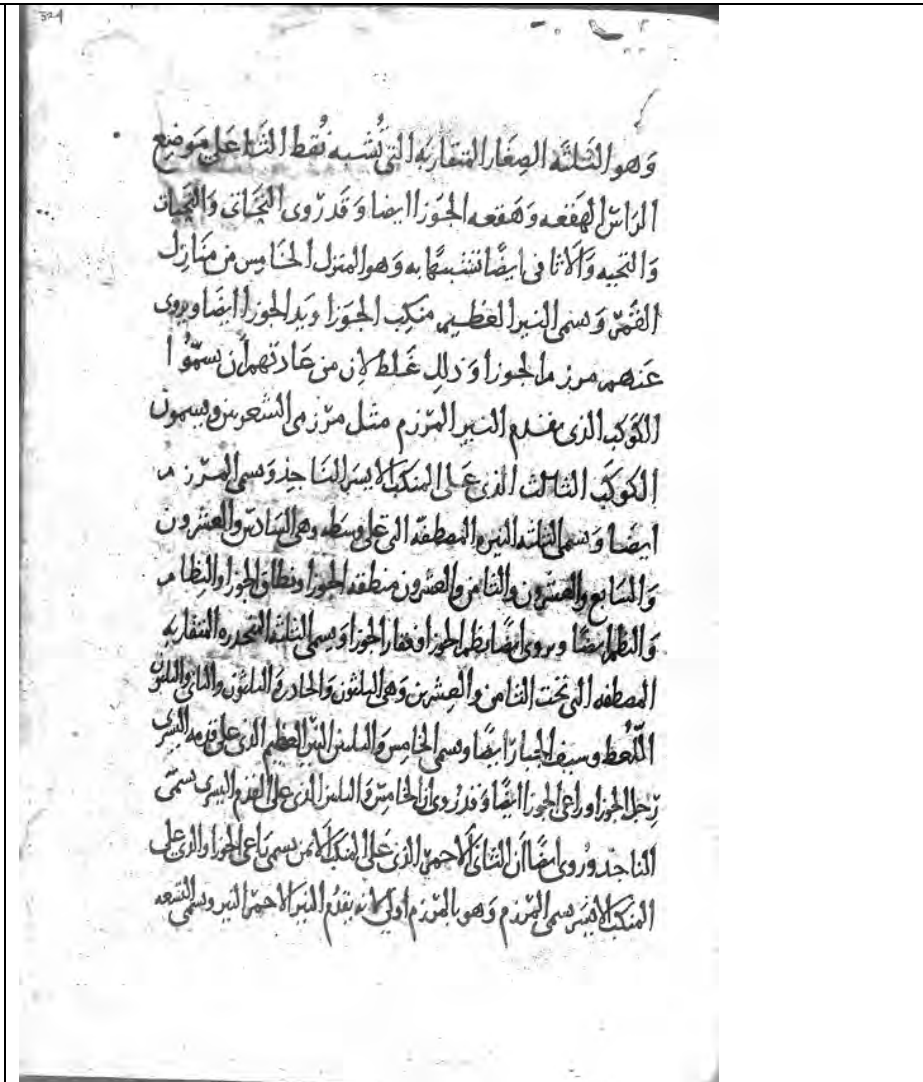 324
وهو الثلثه الصغار المتقاربه التي تشبه نقط الثا على موضع
الراس الهقعه وهقعه الجوزا ايضا وقد روى التحاتى والتحيات
والتحيه والاثافى ايضا تشبيها به وهو المنزل الخامس من منازل
القمر وسمى النير العظيم منكب الجوزا ويد الجوزا ايضا ويروى
عنهم مرزم الجوزا وذلك غلط لان من عادتهم أن يسمّوُا
الكوكب الذى يقدم النير المرزم مثل مرزمى الشعريين ويسمون
الكوكب الثالث الذى على المنكب الايسر الناجذ ويسمى المرزم
ايضا ويسمى الثلثه النيره المصطفه التى على وسطه وهى السادس والعشرون
والسابع والعشرون والثامن والعشرون منطقه الجوزا ونطاق الجوزا والنظام
والنظم ايضا ويروى ايضا نظم الجوزا وفقار الجوزا ويسمى الثلثه المنحدره المتقاربه
المصطفه التى تحت الثامن والعشرين وهى الثلثون والحادى والثلثون والثانى والثلثون
اللّقط وسيف الجبار ايضا ويسمى الخامس والثلثين النيّر العظيم الذى على قدمه اليسرى
رِجل الجوزا وراعى الجوزا ايضا وقد رُوى ان الخامس والثلثين الذى على القدم اليسرى يسمّى
الناجد ورُوى ايضا ان الثانى الاحمر الذى على المنكب الايمن يسمى راعى الجوزا والذى على
المنكب الايسر يسمى المرزم وهو بالمرزم اولى لانه يقدم النير الاحمر النير ويسمى التسعه